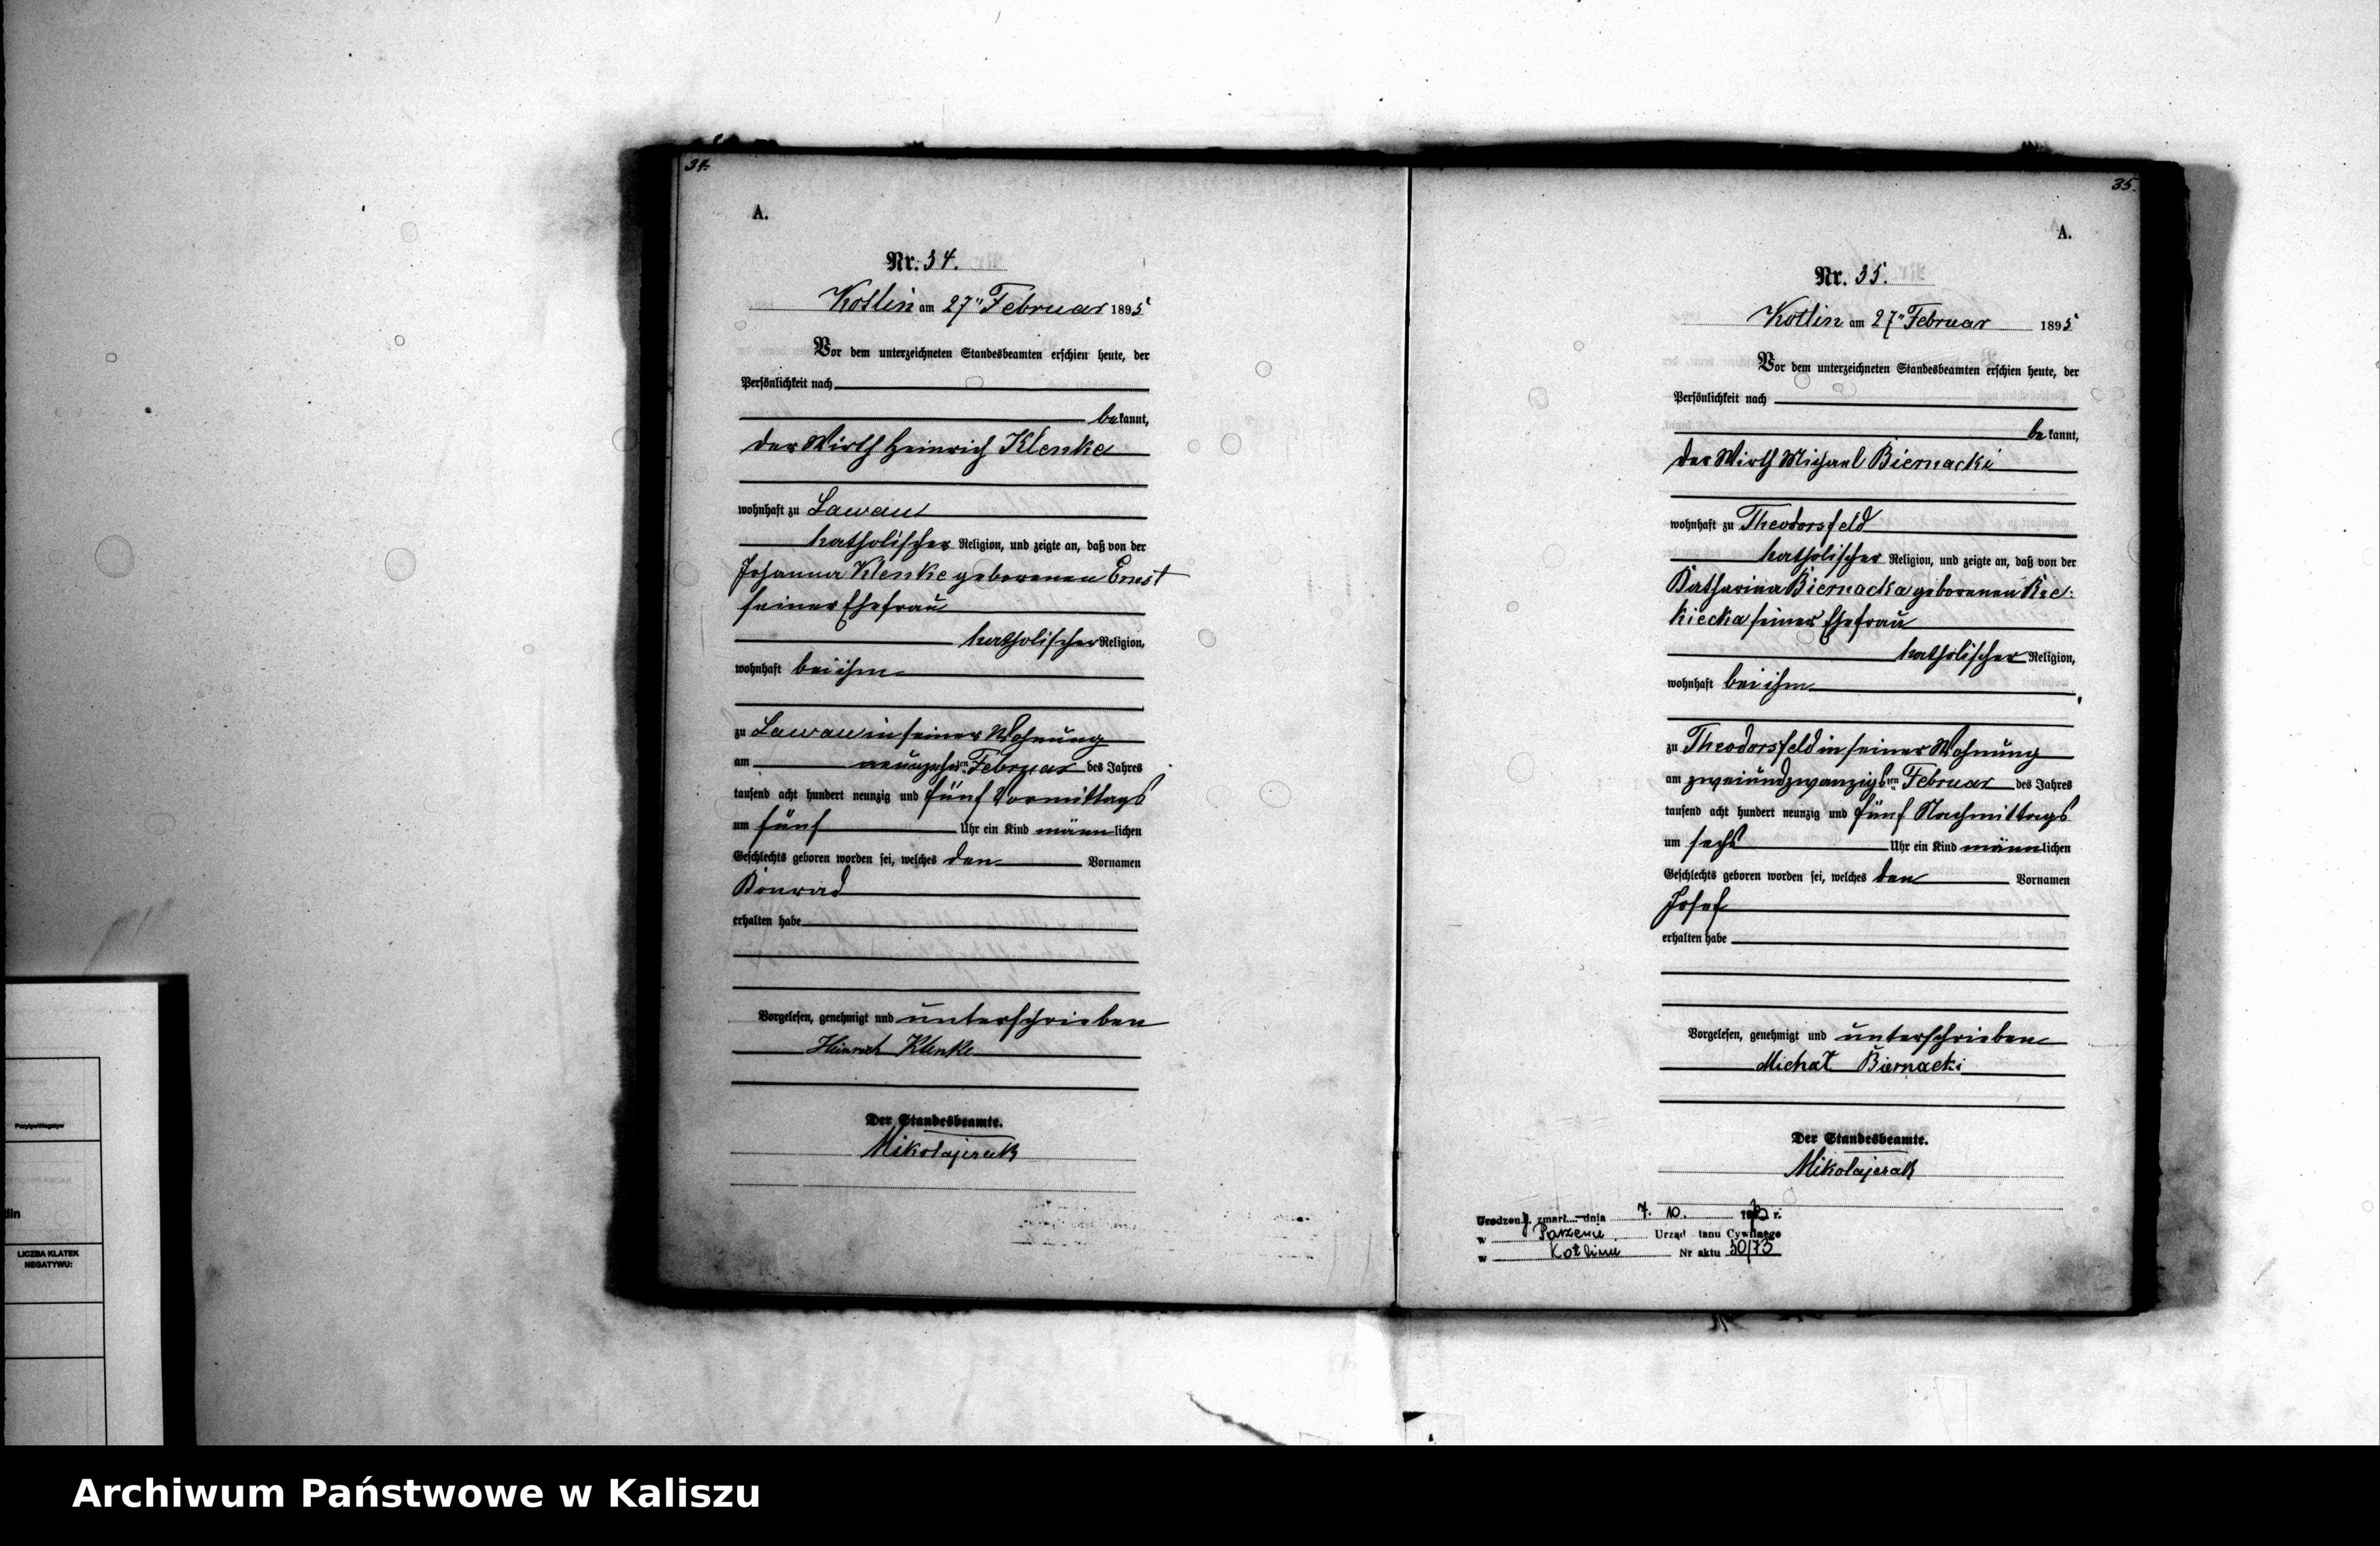 34.
A.
Nr. 34.
Kotlin am 27" Februar 1895
Vor dem unterzeichneten Standesbeamten erschien heute, der
Persönlichkeit nach
bekannt,
der Wirth Heinrich Klenke
wohnhaft zu Lawau
katholischer Religion, und zeigte an, daß von der
Johanna Klenke geborenen Ernst
seiner Ehefrau
katholischer Religion,
wohnhaft bei ihm
zu Lawau in seiner Wohnung
am neunzehnten Februar des Jahres
tausend acht hundert neunzig und fünf Vormittags
um fünf Uhr ein Kind männlichen
Geschlechts geboren worden sei, welches den Vornamen
Konrad
erhalten habe
Vorgelesen, genehmigt und unterschrieben
Heinrich Klenke
Der Standesbeamte.
Mikolajczak
35.
A.
Nr. 35.
Kotlin am 27" Februar 1895
Vor dem unterzeichneten Standesbeamten erschien heute, der
Persönlichkeit nach
bekannt,
der Wirth Michael Biernacki
wohnhaft zu Theodorsfeld
katholischer Religion, und zeigte an, daß von der
Katharina Biernacka geborenen
seiner Ehefrau
katholischer Religion,
wohnhaft bei ihm
zu Theodorsfeld in seiner Wohnung
am zweiundzwanzigsten Februar des Jahres
tausend acht hundert neunzig und fünf Nachmittags
um sechs Uhr ein Kind männlichen
Geschlechts geboren worden sei, welches den Vornamen
Josef
erhalten habe
Vorgelesen, genehmigt und unterschrieben
Michał Biernacki
Der Standesbeamte.
Mikolajczak
zmarł dnia 7. 10. r.
w Urząd Stanu Cywilnego
w Kotlinie Nr aktu 50/73
LICZBA KLATEK
NEGATYWU:
Archiwum Państwowe w Kaliszu